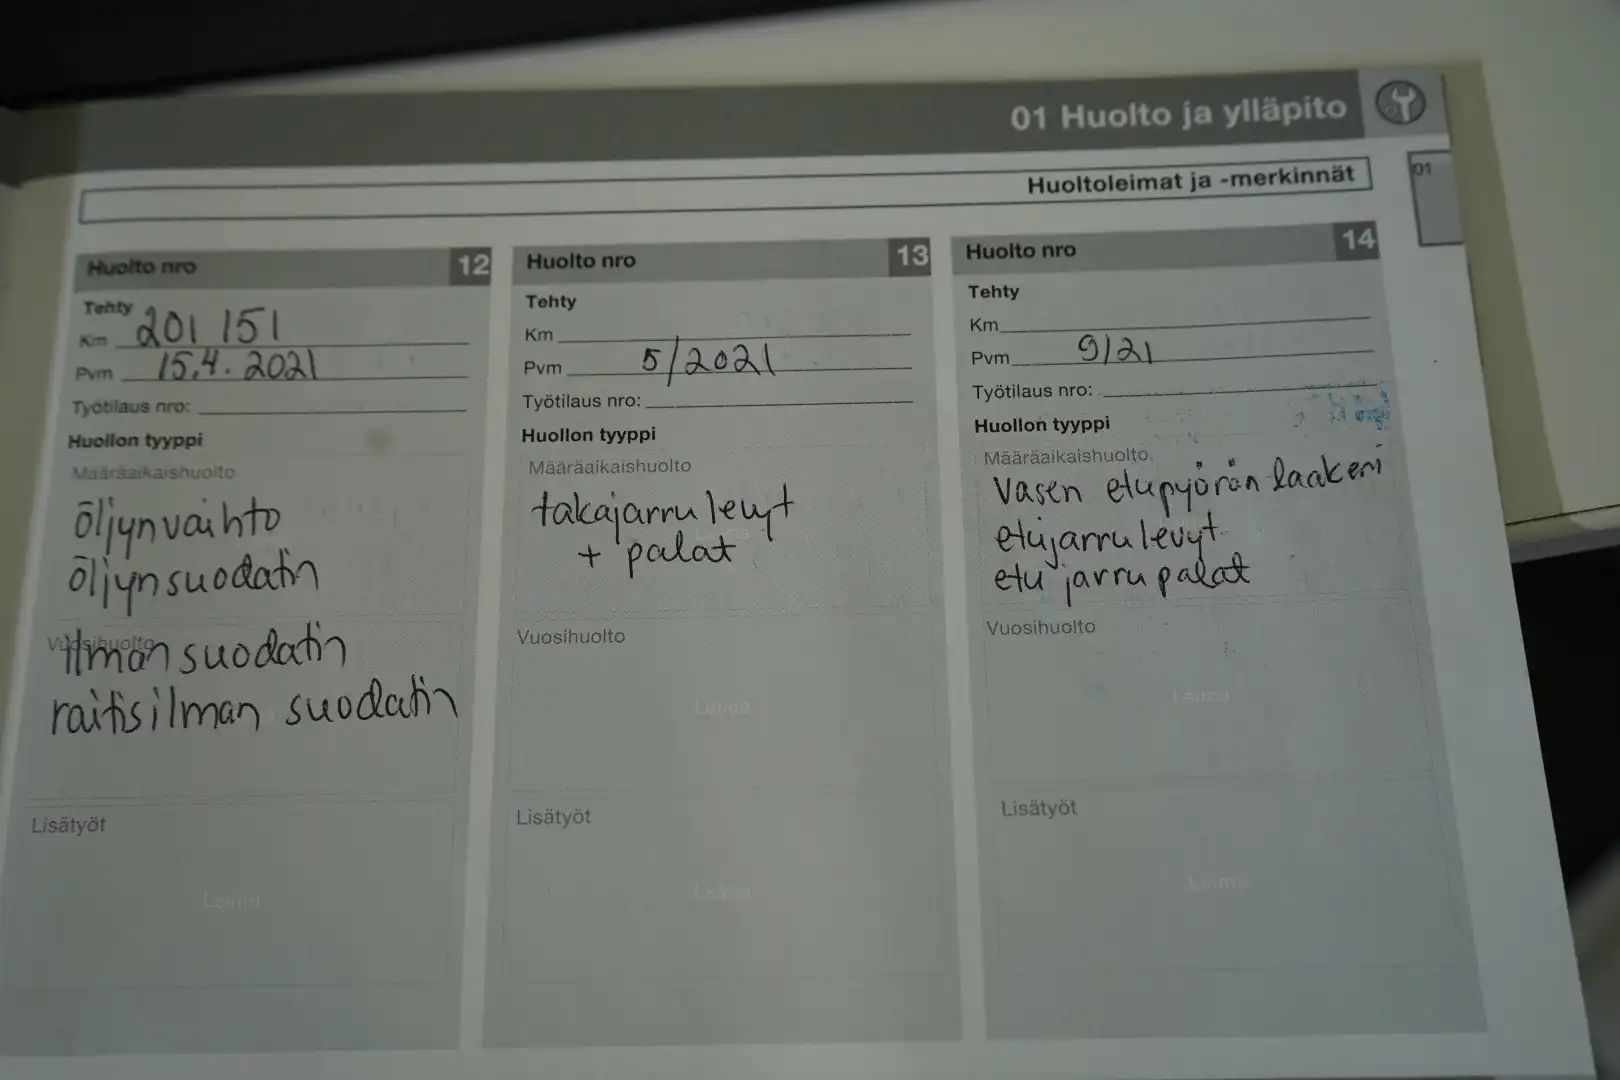 01 Huolto ja ylläpito
01
Huoltoleimat ja -merkinnät
Huolto nro 12
Tehty
Km 201 151
Pvm 15.4.2021
Työtilaus nro:
Huollon tyyppi
Määräaikaishuolto
öljynvaihto
öljynsuodatin
Vuosihuolto
Ilmansuodatin
raitisilman suodatin
Lisätyöt
Leima
Huolto nro 13
Tehty
Km
Pvm 5/2021
Työtilaus nro:
Huollon tyyppi
Määräaikaishuolto
takajarrulevyt
+ palat
Vuosihuolto
Leima
Lisätyöt
Leima
Huolto nro 14
Tehty
Km
Pvm 9/21
Työtilaus nro:
Huollon tyyppi
Määräaikaishuolto
Vasen etupyörän laakeri
etujarrulevyt
etu jarrupalat
Vuosihuolto
Leima
Lisätyöt
Leima